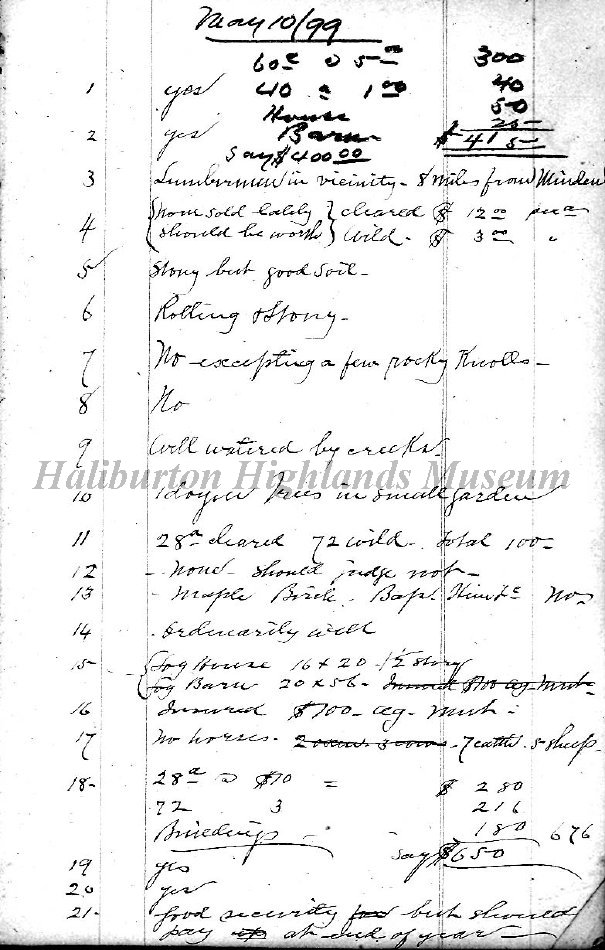 May 10/99
60ac @ 5 00 300
1 yes 40 a 1 00 40
House 50
2 yes Barn 25
Say $400 00 $415
3 Lumbermen in vicinity - 8 miles from Minden
4 {None sold lately} cleared $12 00 per a
{should be worth} Wild - $3 00 "
5 Stony but good soil -
6 Rolling & Stony -
7 No - excepting a few rocky Knolls -
8 No
9 Well watered by creeks -
Haliburton Highlands Museum
10 1 dozen Trees in small garden
11 28a cleared 72 wild - Total 100 -
12 - None should judge not -
13 - Maple Birch - No
14 - Ordinarily well
15 {Log House 16 x 20 - 1½ story
{Log Barn 20 x 56 - Insured $700 ag - Mut -
16 Insured $700 - ag - Mut -
17 No horses - 2 oxen 3 cows - 7 cattle 5 sheep -
18 - 28a @ $10 = $280
72 3 216
Buildings - 180 676
Say $650
19 yes
20 yes
21 - Good security but should
pay at end of year -